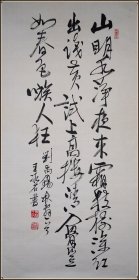 山明水净夜来霜数树深红
出浅黄试上高楼清入骨岂
如春色嗾人狂 刘禹锡秋词